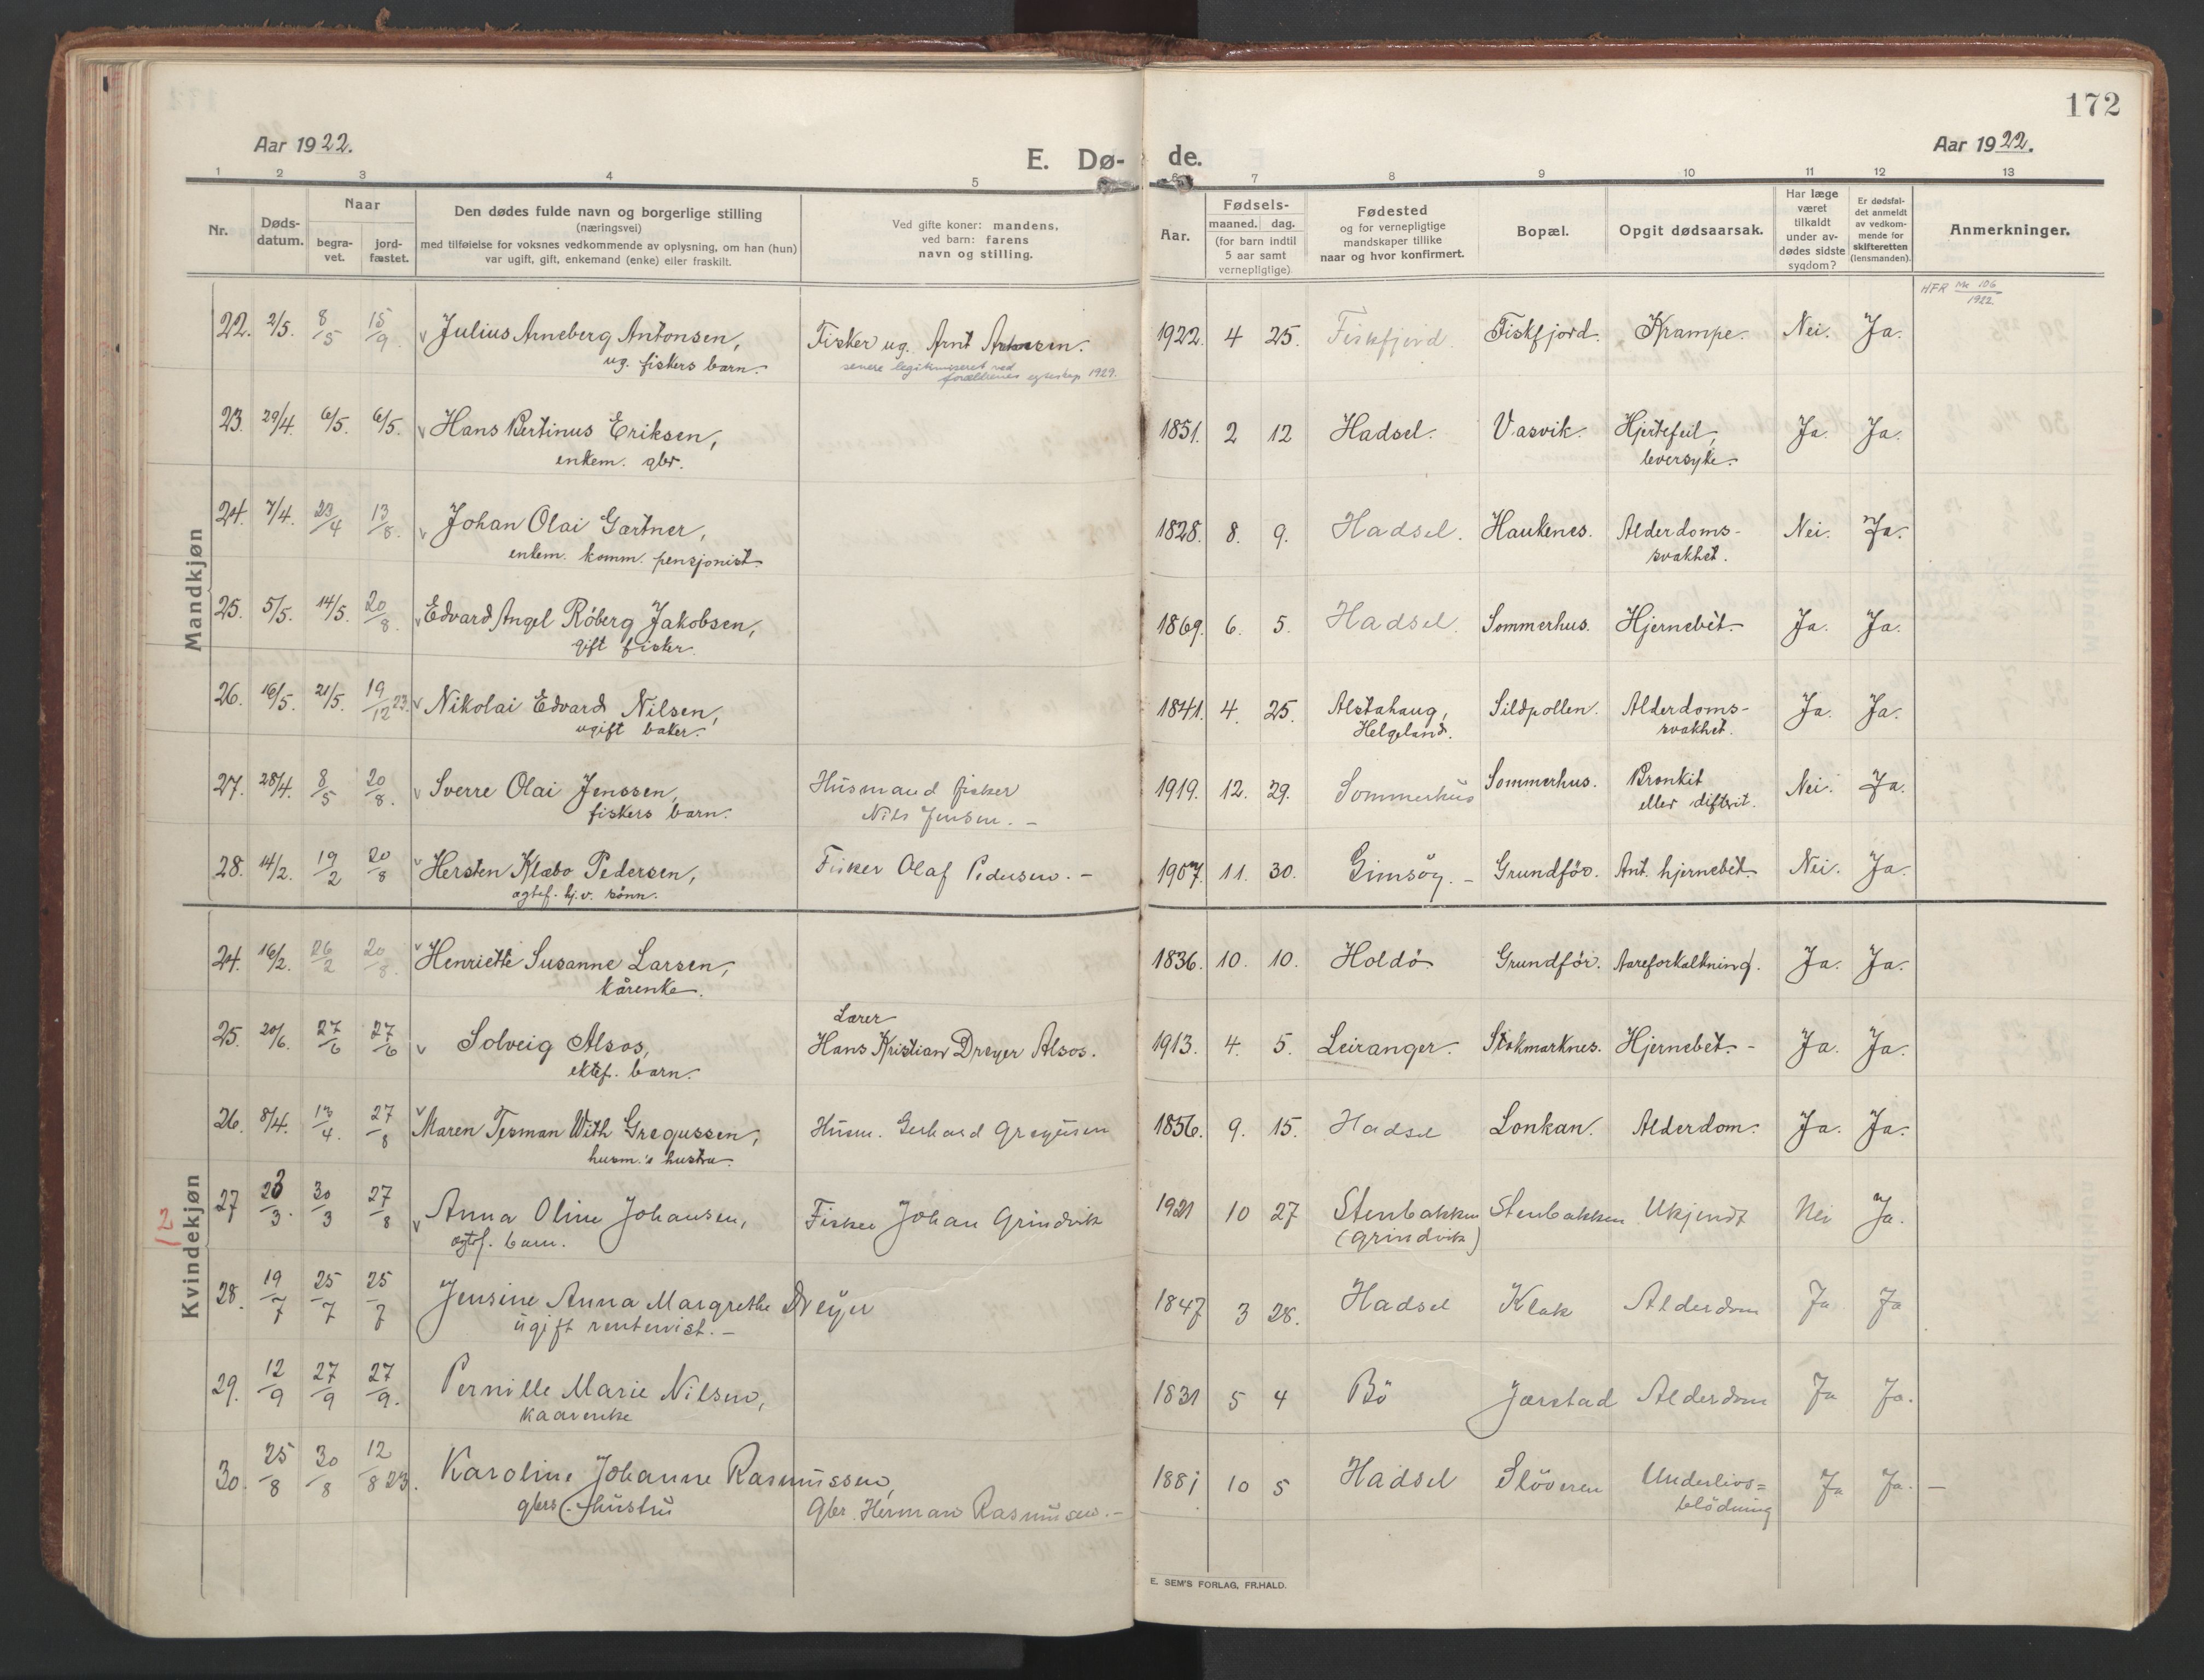 172
Aar 1922.
E. Dø- de.
Aar 1922.
1 2 3 4 5 6 7 8 9 10 11 12 13
Nr.
Døds-
datum.
Naar
begra-
vet.
jord-
fæstet.
Den dødes fulde navn og borgerlige stilling
(næringsvei)
med tilføielse for voksnes vedkommende av oplysning, om han (hun)
var ugift, gift, enkemand (enke) eller fraskilt.
Ved gifte koner: mandens,
ved barn: farens
navn og stilling.
Aar.
Fødsels-
maaned. dag.
(for barn indtil
5 aar samt
vernepligtige)
Fødested
og for vernepligtige
mandskaper tillike
naar og hvor konfirmert.
Bopæl.
Opgit dødsaarsak.
Har læge
været
tilkaldt
under av-
dødes sidste
sygdom?
Er dødsfal-
det anmeldt
av vedkom-
mende for
skifteretten
(lensmanden).
Anmerkninger.
HFR Nr 106
1922
Mandkjøn
22. 2/5. 8/5 15/9. Julius Arneberg Antonsen, Fisker ug. Arnt 1922. 4 25. Fiskfjord Fiskfjord. Krampe. Nei. Ja.
ug. fiskers barn. senere legitimiseret ved
forældrenes egteskap 1929.
23. 29/4. 6/5. 6/5. Hans Bertinus Eriksen, 1851. 2 12 Hadsel. Vasvik. Hjertefeil, Ja. Ja.
enkem. gbr. leversyke.
24. 7/4. 23/4 13/8. Johan Olai Gærtner, 1828. 8. 9. Hadsel. Haukenes. Alderdoms- Nei. Ja.
enkem. komm. pensjonist. svakhet.
25. 5/5. 14/5. 20/8. Edvard Angel Röberg Jakobsen, 1869. 6. 5. Hadsel. Sommerhus. Hjernebet. Ja. Ja.
gift fisker.
26. 16/5. 21/5. 19/12 23. Nikolai Edvard Nilsen, 1841. 4. 25. Alstahaug, Sildpollen. Alderdoms- Ja. Ja.
ugift baker. Helgeland. svakhet.
27. 28/4. 8/5 20/8. Sverre Olai Jenssen, Husmand fisker 1919. 12. 29. Sommerhus Sommerhus. Bronkit Nei. Ja.
fiskers barn. Nils Jensen. - eller difterit.
28. 14/2. 19/2 20/8 Hersten Klæbo Pedersen, Fisker Olaf Pedersen. - 1907. 11. 30. Gimsöy. - Grundför. Ant. hjernebet. Nei. Ja.
ægtef. hj.v. sönn.
Kvindekjøn
24. 16/2. 26/2 20/8. Henriette Susanne Larsen, 1836. 10. 10. Holdö Grundför. Aareforkalkning. Ja. Ja.
kårenke.
Lærer
25. 20/6. 27/6 27/6 Solveig Alsos, Hans Kristian Dreyer Alsos. 1913. 4. 5. Leiranger. Stokmarknes. Hjernebet. - Ja. Ja.
ektef. barn.
26. 8/4. 13/4. 27/8 Maren Tesman With Gregussen, Husm. Gerhard Gregusen 1856. 9. 15. Hadsel Lonkan. Alderdom. Ja. Ja.
husm.'s hustru.
2
27 23/3. 30/3 27/8 Anna Oline Johansen, Fisker Johan Grindvik 1921 10 27 Stenbakken Stenbakken Ukjendt Nei Ja.
ægtef. barn. (Grindvik)
28. 19/7 25/7 25/7 Jensine Anna Margrethe Dreyer 1847 3 28. Hadsel Klak Alderdom Ja Ja
ugift rentenist. -
29. 12/9 27/9 27/9. Pernille Marie Nilsen, 1831 5 4 Bö Jørstad Alderdom Ja Ja.
kaarenke
30. 25/8 30/8 12/8 23. Karoline Johanne Rasmussen, 1881 10 5 Hadsel Stöveren Underlivs= Ja Ja. -
gbrs. hustru Gbr. Herman Rasmussen. - blödning
E. SEM'S FORLAG, FR.HALD.